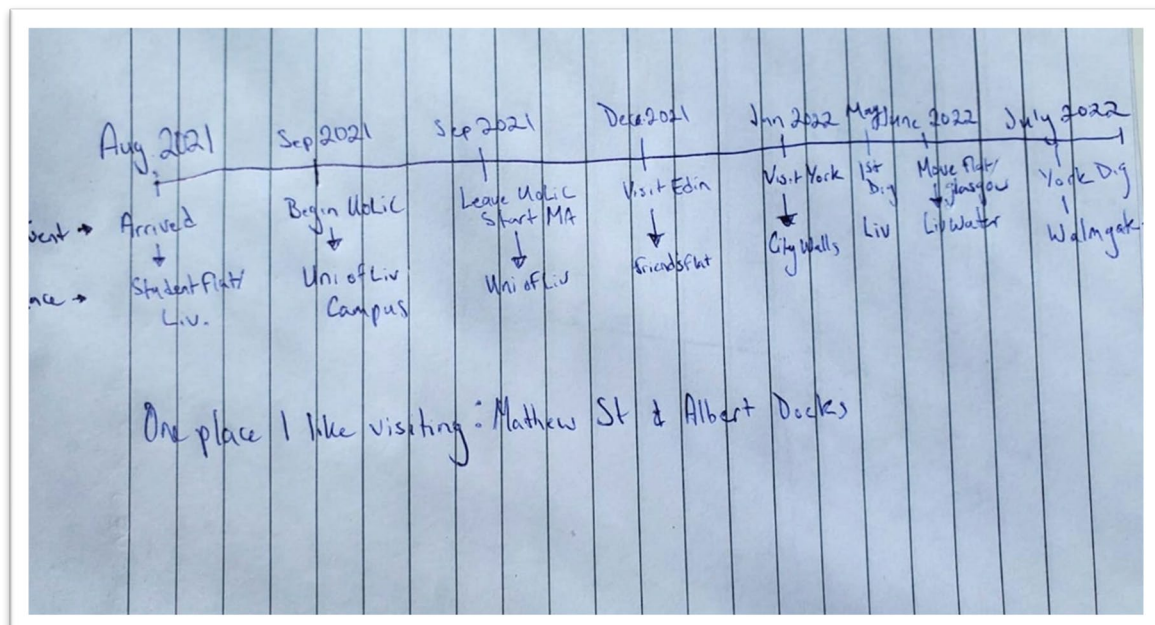 Aug 2021 Sep 2021 Sep 2021 Dec 2021 Jan 2022 May June 2022 July 2022
Arrived Begin UoLiC Leave UoLiC Start MA Visit Edin Visit York 1st Dig Move flat/ glasgow York Dig
Student flat/ Liv. Uni of Liv Campus Uni of Liv friends flat City Walls Liv Liv Water Walmgate
One place I like visiting: Mathew St & Albert Docks